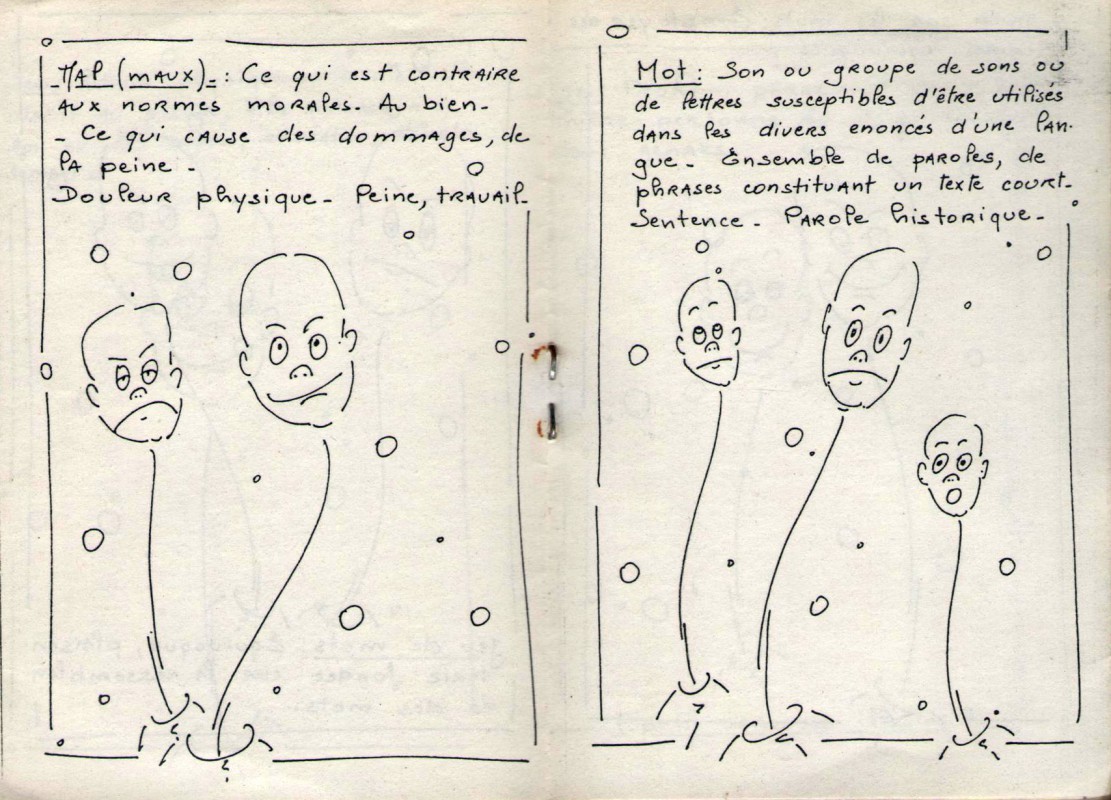 Mal (maux)_: Ce qui est contraire
aux normes morales. Au bien_
_ Ce qui cause des dommages, de
la peine _
Douleur physique_ Peine, travail_
Mot: Son ou groupe de sons ou
de lettres susceptibles d'être utilisés
dans les divers enoncés d'une lan-
gue_ Ensemble de paroles, de
phrases constituant un texte court_
Sentence_ Parole historique_